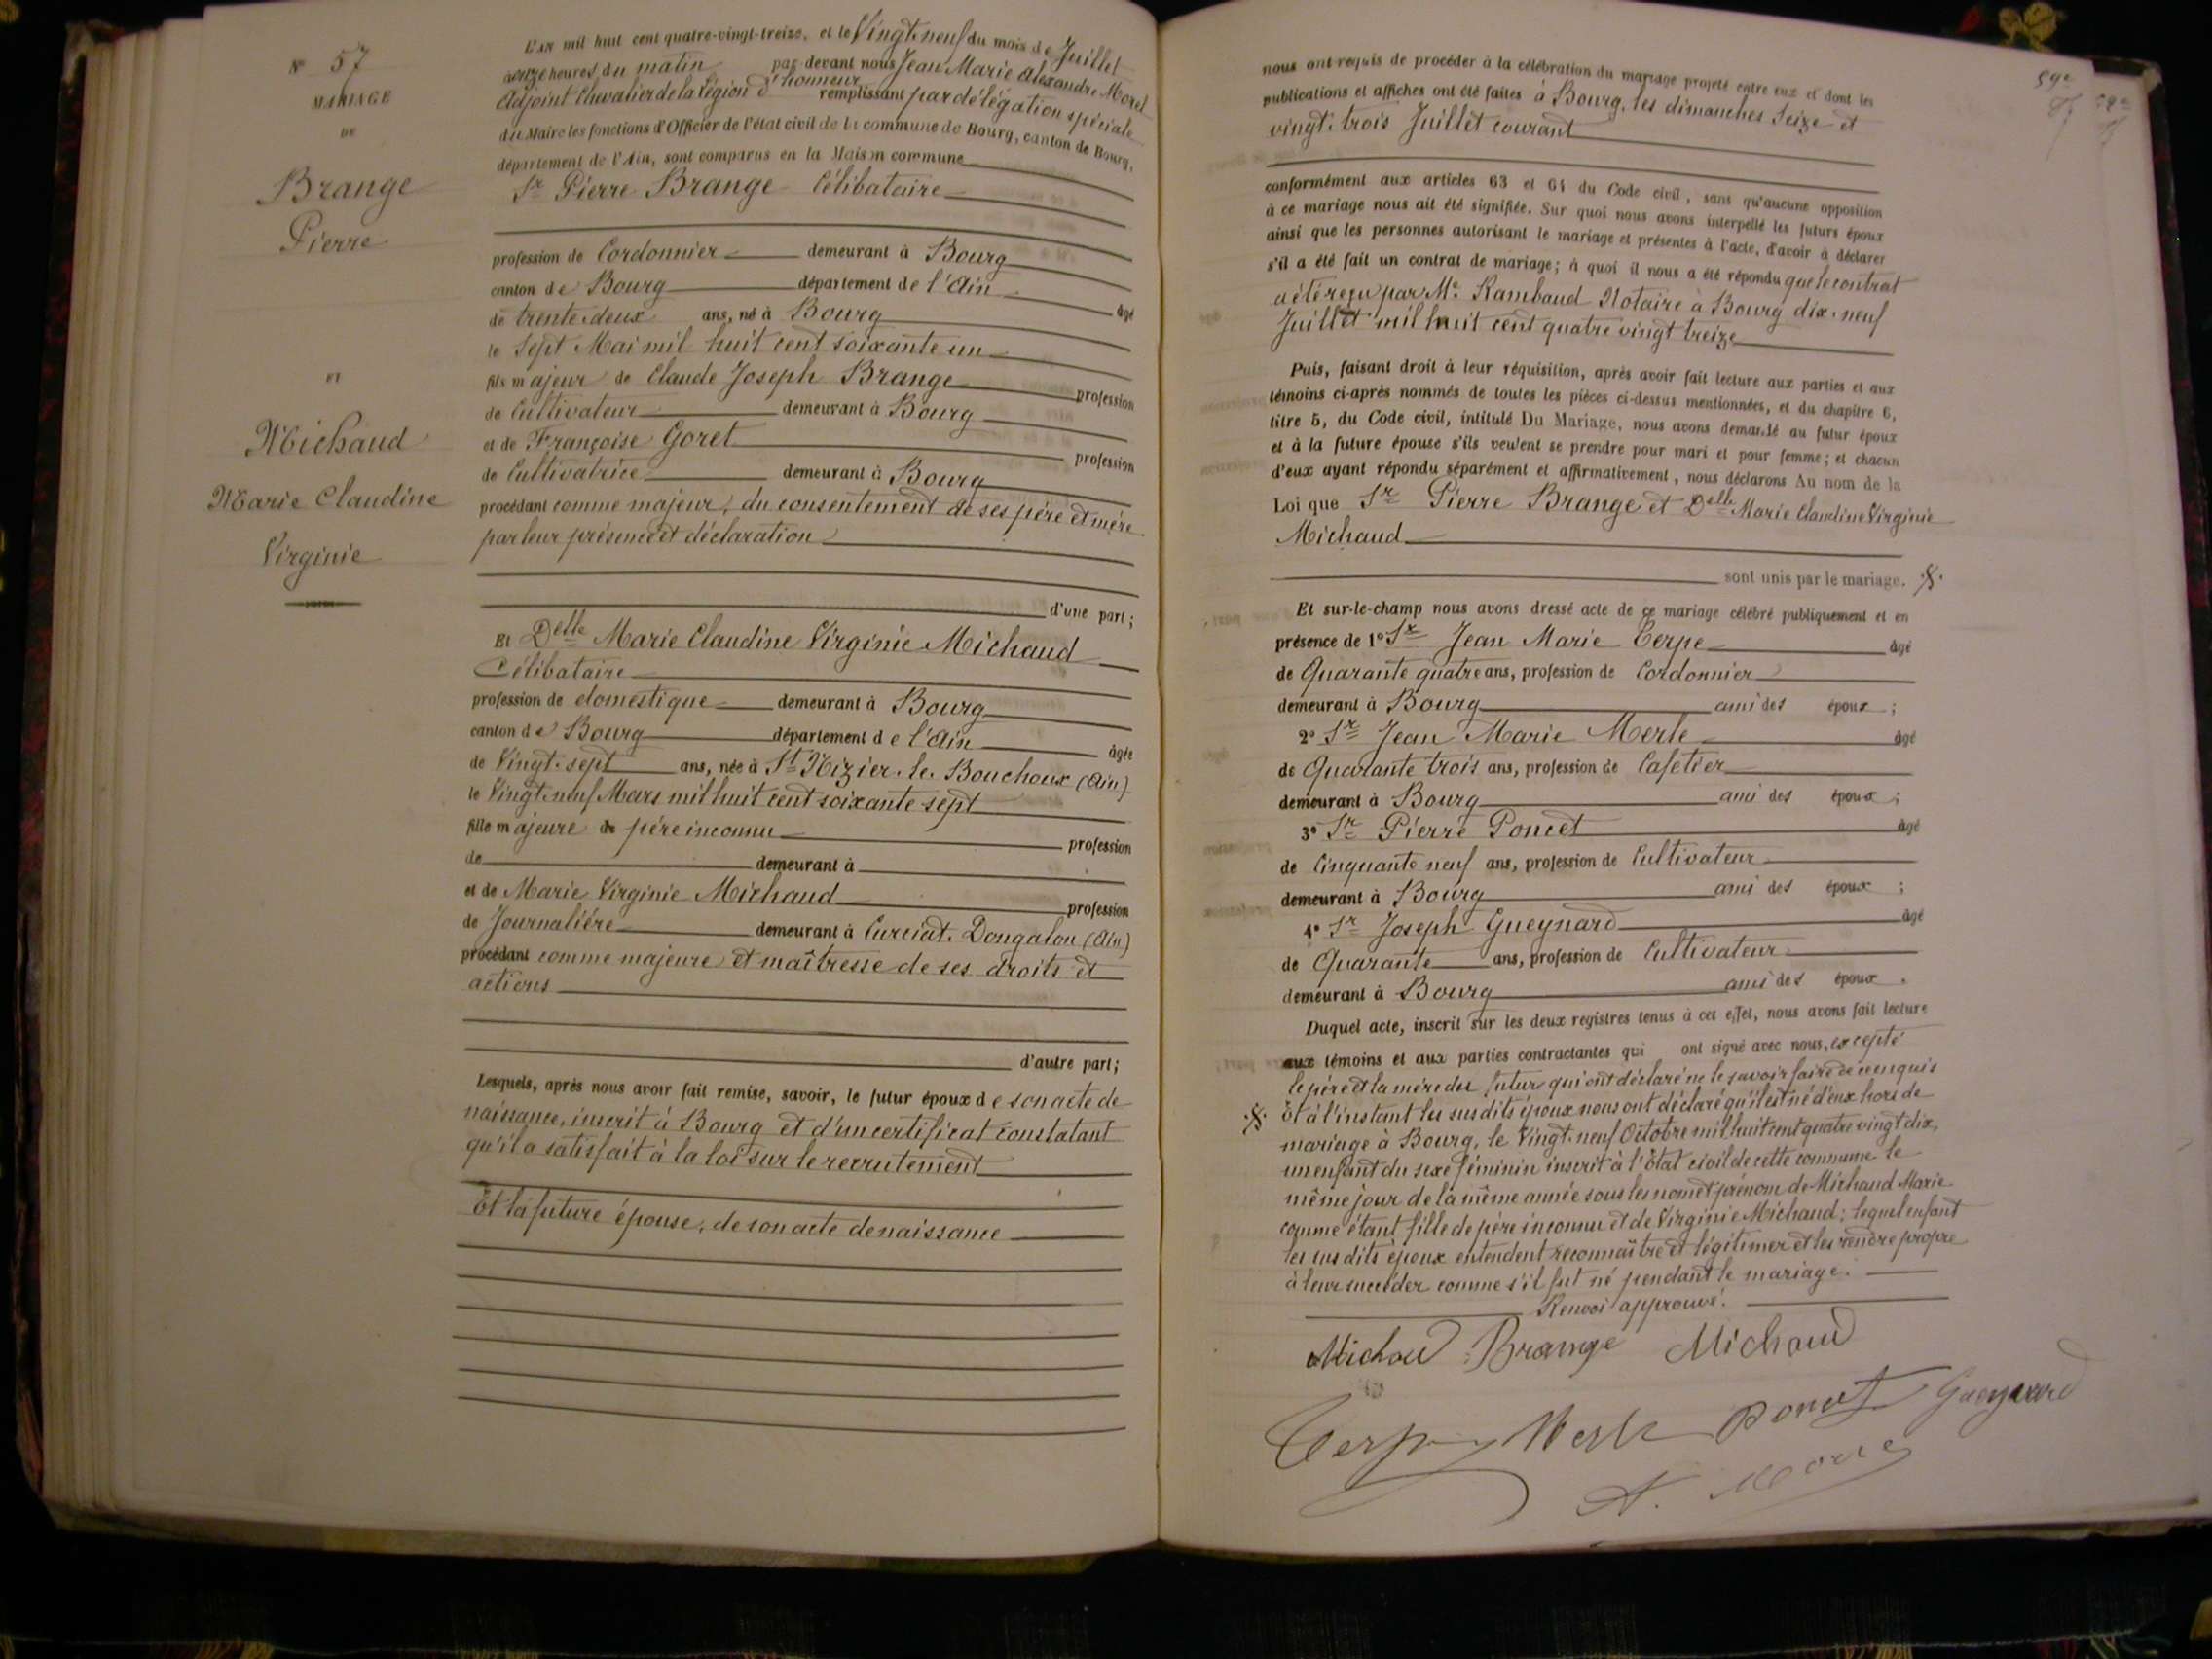 N° 57
MARIAGE
DE
Brange
Pierre
ET
Michaud
Marie Claudine
Virginie
L'AN mil huit cent quatre-vingt-treize, et le Vingt-neuf du mois de Juillet
à onze heures du matin par-devant nous Jean Marie Alexandre Morel
Adjoint Chevalier de la Légion d'honneur remplissant par délégation spéciale
du Maire les fonctions d'Officier de l'état civil de la commune de Bourg, canton de Bourg,
département de l'Ain, sont comparus en la Maison commune
Sr Pierre Brange Célibataire
profession de Cordonnier demeurant à Bourg
canton de Bourg département de l'Ain âgé
de trente-deux ans, né à Bourg
le Sept Mai mil huit cent soixante un
fils majeur de Claude Joseph Brange profession
de Cultivateur demeurant à Bourg
et de Françoise Goret profession
de Cultivatrice demeurant à Bourg
procédant comme majeur, du consentement de ses père et mère
par leur présence et déclaration
d'une part;
Et Delle Marie Claudine Virginie Michaud
Célibataire
profession de domestique demeurant à Bourg
canton de Bourg département de l'Ain âgée
de Vingt-sept ans, née à St Nizier-le-Bouchoux (Ain)
le Vingt-neuf Mars mil huit cent soixante sept
fille majeure de père inconnu profession
de demeurant à
et de Marie Virginie Michaud profession
de Journalière demeurant à Curciat-Dongalon (Ain)
procédant comme majeure et maîtresse de ses droits et
actions
d'autre part;
Lesquels, après nous avoir fait remise, savoir, le futur époux de son acte de
naissance, inscrit à Bourg et d'un certificat constatant
qu'il a satisfait à la loi sur le recrutement
Et la future épouse, de son acte de naissance
59e
nous ont requis de procéder à la célébration du mariage projeté entre eux et dont les
publications et affiches ont été faites à Bourg, les dimanches Seize et
vingt-trois Juillet courant
conformément aux articles 63 et 64 du Code civil, sans qu'aucune opposition
à ce mariage nous ait été signifiée. Sur quoi nous avons interpellé les futurs époux
ainsi que les personnes autorisant le mariage et présentes à l'acte, d'avoir à déclarer
s'il a été fait un contrat de mariage; à quoi il nous a été répondu que le contrat
a été reçu par Me Rambaud Notaire à Bourg dix-neuf
Juillet mil huit cent quatre vingt treize
Puis, faisant droit à leur réquisition, après avoir fait lecture aux parties et aux
témoins ci-après nommés de toutes les pièces ci-dessus mentionnées, et du chapitre 6,
titre 5, du Code civil, intitulé Du Mariage, nous avons demandé au futur époux
et à la future épouse s'ils veulent se prendre pour mari et pour femme; et chacun
d'eux ayant répondu séparément et affirmativement, nous déclarons Au nom de la
Loi que Sr Pierre Brange et Delle Marie Claudine Virginie
Michaud
sont unis par le mariage.
Et sur-le-champ nous avons dressé acte de ce mariage célébré publiquement et en
présence de 1° Sr Jean Marie Terpe âgé
de Quarante quatre ans, profession de Cordonnier
demeurant à Bourg ami des époux;
2° Sr Jean Marie Merle âgé
de Quarante trois ans, profession de Cafetier
demeurant à Bourg ami des époux;
3° Sr Pierre Poncet âgé
de Cinquante neuf ans, profession de Cultivateur
demeurant à Bourg ami des époux;
4° Sr Joseph Gueynard âgé
de Quarante ans, profession de Cultivateur
demeurant à Bourg ami des époux.
Duquel acte, inscrit sur les deux registres tenus à cet effet, nous avons fait lecture
aux témoins et aux parties contractantes qui ont signé avec nous, excepté
le père et la mère du futur qui ont déclaré ne le savoir faire de ce enquis
Et à l'instant les susdits époux nous ont déclaré qu'il est né d'eux hors de
mariage à Bourg, le Vingt-neuf Octobre mil huit cent quatre vingt dix,
un enfant du sexe féminin inscrit à l'Etat civil de cette commune le
même jour de la même année sous les nom et prénom de Michaud Marie
comme étant fille de père inconnu et de Virginie Michaud; lequel enfant
les susdits époux entendent reconnaître et légitimer et les rendre propre
à leur succéder comme s'il fut né pendant le mariage.
Renvoi approuvé.
Michaud Brange Michaud
Terpe Merle Poncet Gueynard
A. Morel